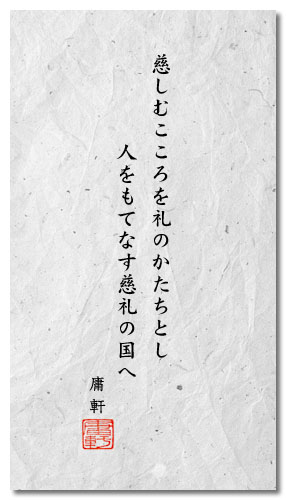 慈しむこころを礼のかたちとし
人をもてなす慈礼の国へ
庸軒
庸軒